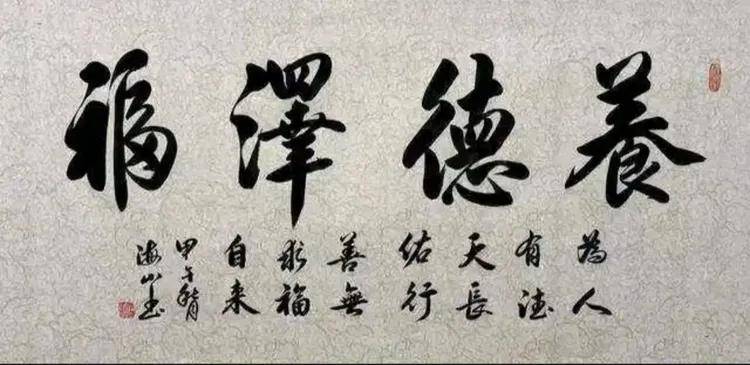 養德澤福
為人
有德
天長
佑行
善無
求福
自来
甲午
海山書